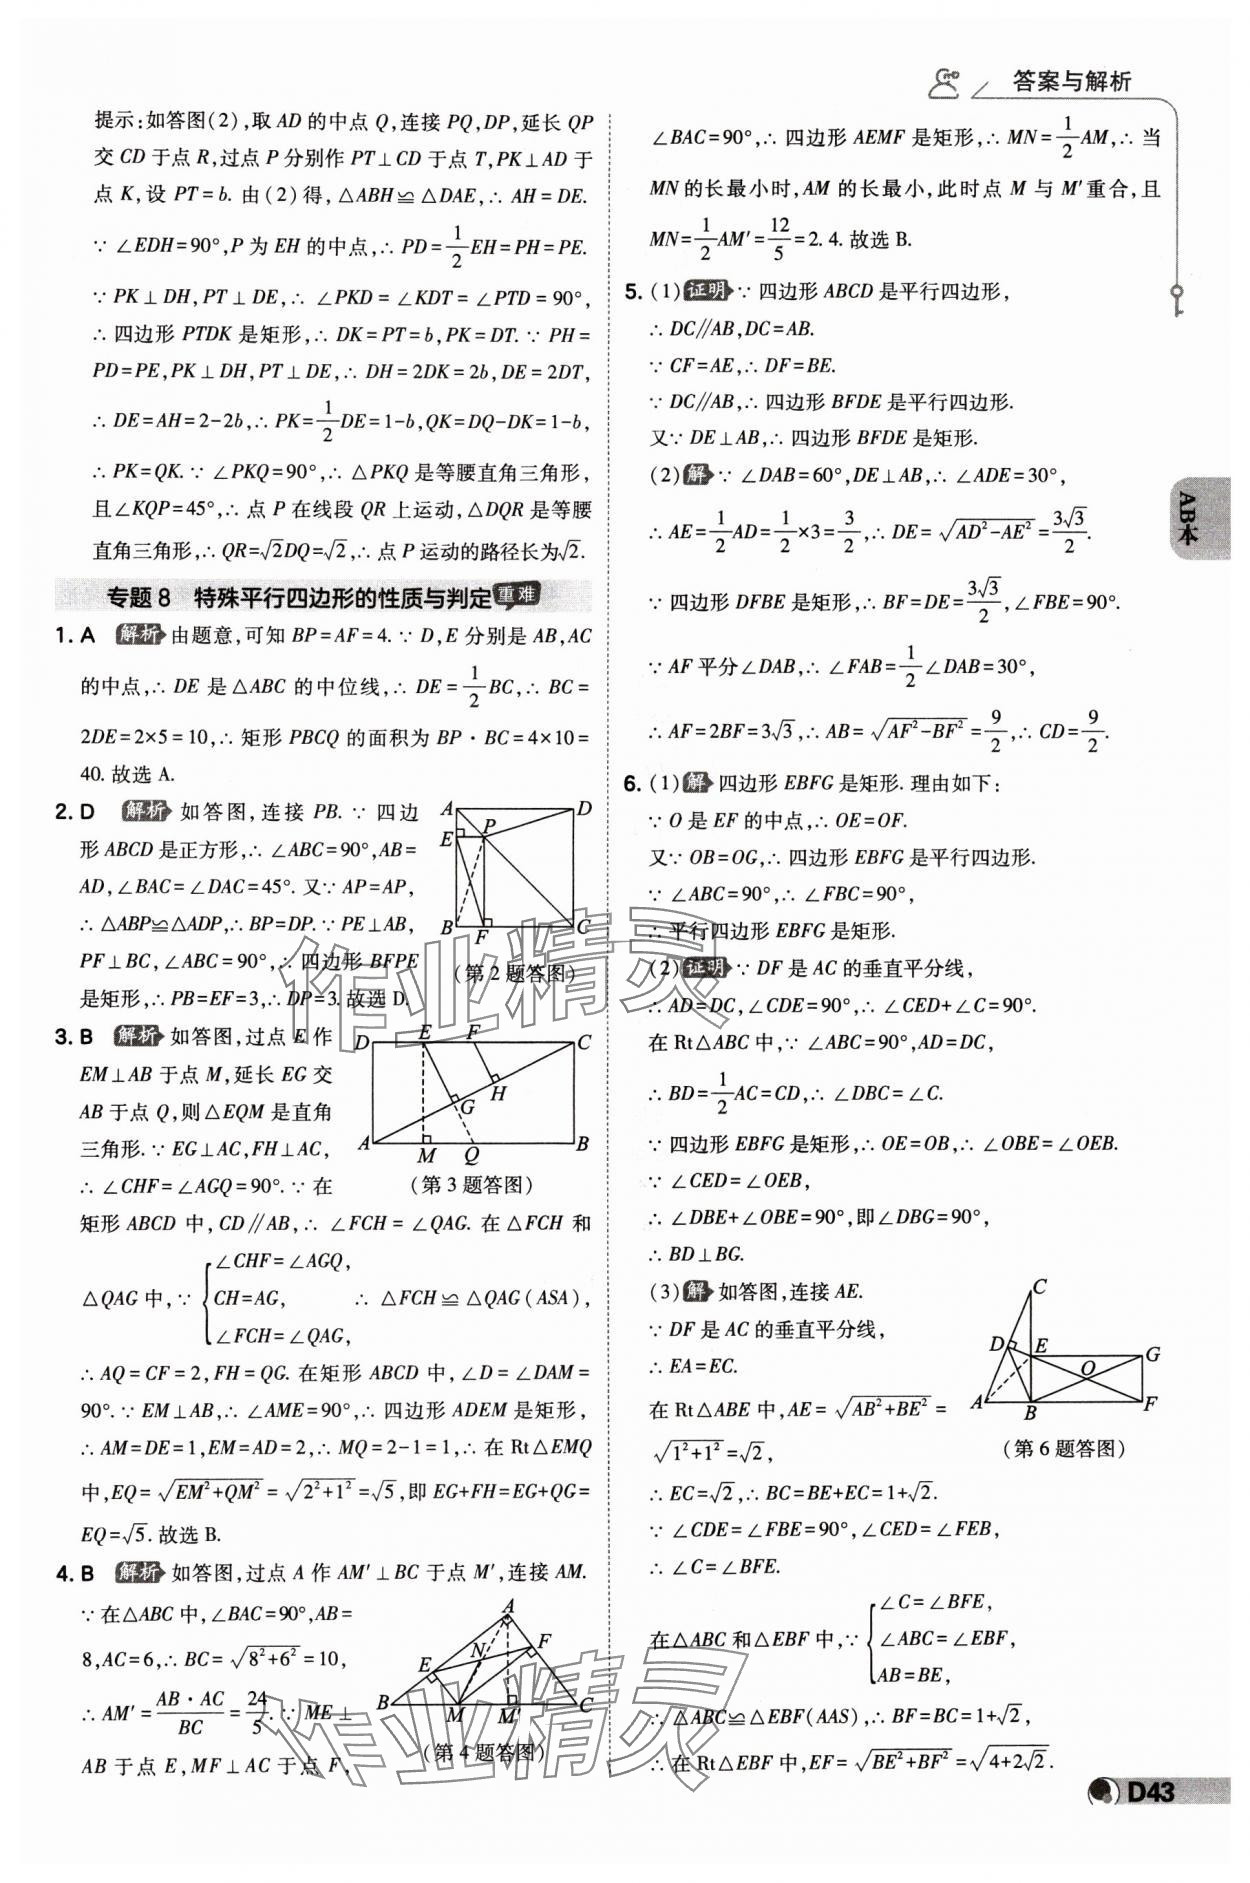 答案与解析
提示:如答图(2),取 AD 的中点 Q,连接 PQ,DP,延长 QP
交 CD 于点 R,过点 P 分别作 PT⊥CD 于点 T,PK⊥AD 于
点 K,设 PT=b. 由(2)得,△ABH≌△DAE,∴ AH=DE.
∵ ∠EDH=90°,P 为 EH 的中点,∴ PD=1/2EH=PH=PE.
∵ PK⊥DH,PT⊥DE,∴ ∠PKD=∠KDT=∠PTD=90°,
∴ 四边形 PTDK 是矩形,∴ DK=PT=b,PK=DT. ∵ PH=
PD=PE,PK⊥DH,PT⊥DE,∴ DH=2DK=2b,DE=2DT,
∴ DE=AH=2-2b,∴ PK=1/2DE=1-b,QK=DQ-DK=1-b,
∴ PK=QK. ∵ ∠PKQ=90°,∴ △PKQ 是等腰直角三角形,
且∠KQP=45°,∴ 点 P 在线段 QR 上运动,△DQR 是等腰
直角三角形,∴ QR=√2DQ=√2,∴ 点 P 运动的路径长为√2.
专题 8 特殊平行四边形的性质与判定 重难
1. A 解析 由题意,可知 BP=AF=4. ∵ D,E 分别是 AB,AC
的中点,∴ DE 是△ABC 的中位线,∴ DE=1/2BC,∴ BC=
2DE=2×5=10,∴ 矩形 PBCQ 的面积为 BP·BC=4×10=
40. 故选 A.
2. D 解析 如答图,连接 PB. ∵ 四边
形 ABCD 是正方形,∴ ∠ABC=90°,AB=
AD,∠BAC=∠DAC=45°. 又∵ AP=AP,
∴ △ABP≌△ADP,∴ BP=DP. ∵ PE⊥AB,
PF⊥BC,∠ABC=90°,∴ 四边形 BFPE
是矩形,∴ PB=EF=3,∴ DP=3. 故选 D.
A D E P B F C
(第 2 题答图)
3. B 解析 如答图,过点 E 作
EM⊥AB 于点 M,延长 EG 交
AB 于点 Q,则△EQM 是直角
三角形. ∵ EG⊥AC,FH⊥AC,
∴ ∠CHF=∠AGQ=90°. ∵ 在
D E F C H G A M Q B
(第 3 题答图)
矩形 ABCD 中,CD∥AB,∴ ∠FCH=∠QAG. 在△FCH 和
△QAG 中,∵ { ∠CHF=∠AGQ,
CH=AG,
∠FCH=∠QAG,
∴ △FCH≌△QAG(ASA),
∴ AQ=CF=2,FH=QG. 在矩形 ABCD 中,∠D=∠DAM=
90°. ∵ EM⊥AB,∴ ∠AME=90°,∴ 四边形 ADEM 是矩形,
∴ AM=DE=1,EM=AD=2,∴ MQ=2-1=1,∴ 在 Rt△EMQ
中,EQ=√(EM²+QM²)=√(2²+1²)=√5,即 EG+FH=EG+QG=
EQ=√5. 故选 B.
4. B 解析 如答图,过点 A 作 AM′⊥BC 于点 M′,连接 AM.
∵ 在△ABC 中,∠BAC=90°,AB=
8,AC=6,∴ BC=√(8²+6²)=10,
∴ AM′=AB·AC/BC=24/5. ∵ ME⊥
AB 于点 E,MF⊥AC 于点 F,
A F N E B M M′ C
(第 4 题答图)
∠BAC=90°,∴ 四边形 AEMF 是矩形,∴ MN=1/2AM,∴ 当
MN 的长最小时,AM 的长最小,此时点 M 与 M′重合,且
MN=1/2AM′=12/5=2.4. 故选 B.
5. (1) 证明 ∵ 四边形 ABCD 是平行四边形,
∴ DC∥AB,DC=AB.
∵ CF=AE,∴ DF=BE.
∵ DC∥AB,∴ 四边形 BFDE 是平行四边形.
又∵ DE⊥AB,∴ 四边形 BFDE 是矩形.
(2) 解 ∵ ∠DAB=60°,DE⊥AB,∴ ∠ADE=30°,
∴ AE=1/2AD=1/2×3=3/2,∴ DE=√(AD²-AE²)=3√3/2.
∵ 四边形 DFBE 是矩形,∴ BF=DE=3√3/2,∠FBE=90°.
∵ AF 平分∠DAB,∴ ∠FAB=1/2∠DAB=30°,
∴ AF=2BF=3√3,∴ AB=√(AF²-BF²)=9/2,∴ CD=9/2.
6. (1) 解 四边形 EBFG 是矩形. 理由如下:
∵ O 是 EF 的中点,∴ OE=OF.
又∵ OB=OG,∴ 四边形 EBFG 是平行四边形.
∵ ∠ABC=90°,∴ ∠FBC=90°,
∴ 平行四边形 EBFG 是矩形.
(2) 证明 ∵ DF 是 AC 的垂直平分线,
∴ AD=DC,∠CDE=90°,∴ ∠CED+∠C=90°.
在 Rt△ABC 中,∵ ∠ABC=90°,AD=DC,
∴ BD=1/2AC=CD,∴ ∠DBC=∠C.
∵ 四边形 EBFG 是矩形,∴ OE=OB,∴ ∠OBE=∠OEB.
∵ ∠CED=∠OEB,
∴ ∠DBE+∠OBE=90°,即∠DBG=90°,
∴ BD⊥BG.
(3) 解 如答图,连接 AE.
∵ DF 是 AC 的垂直平分线,
∴ EA=EC.
在 Rt△ABE 中,AE=√(AB²+BE²)=
√(1²+1²)=√2,
C D E G O A B F
(第 6 题答图)
∴ EC=√2,∴ BC=BE+EC=1+√2.
∵ ∠CDE=∠FBE=90°,∠CED=∠FEB,
∴ ∠C=∠BFE.
在△ABC 和△EBF 中,∵ { ∠C=∠BFE,
∠ABC=∠EBF,
AB=BE,
∴ △ABC≌△EBF(AAS),∴ BF=BC=1+√2,
∴ 在 Rt△EBF 中,EF=√(BE²+BF²)=√(4+2√2).
AB本
D43
作业精灵
作业精灵